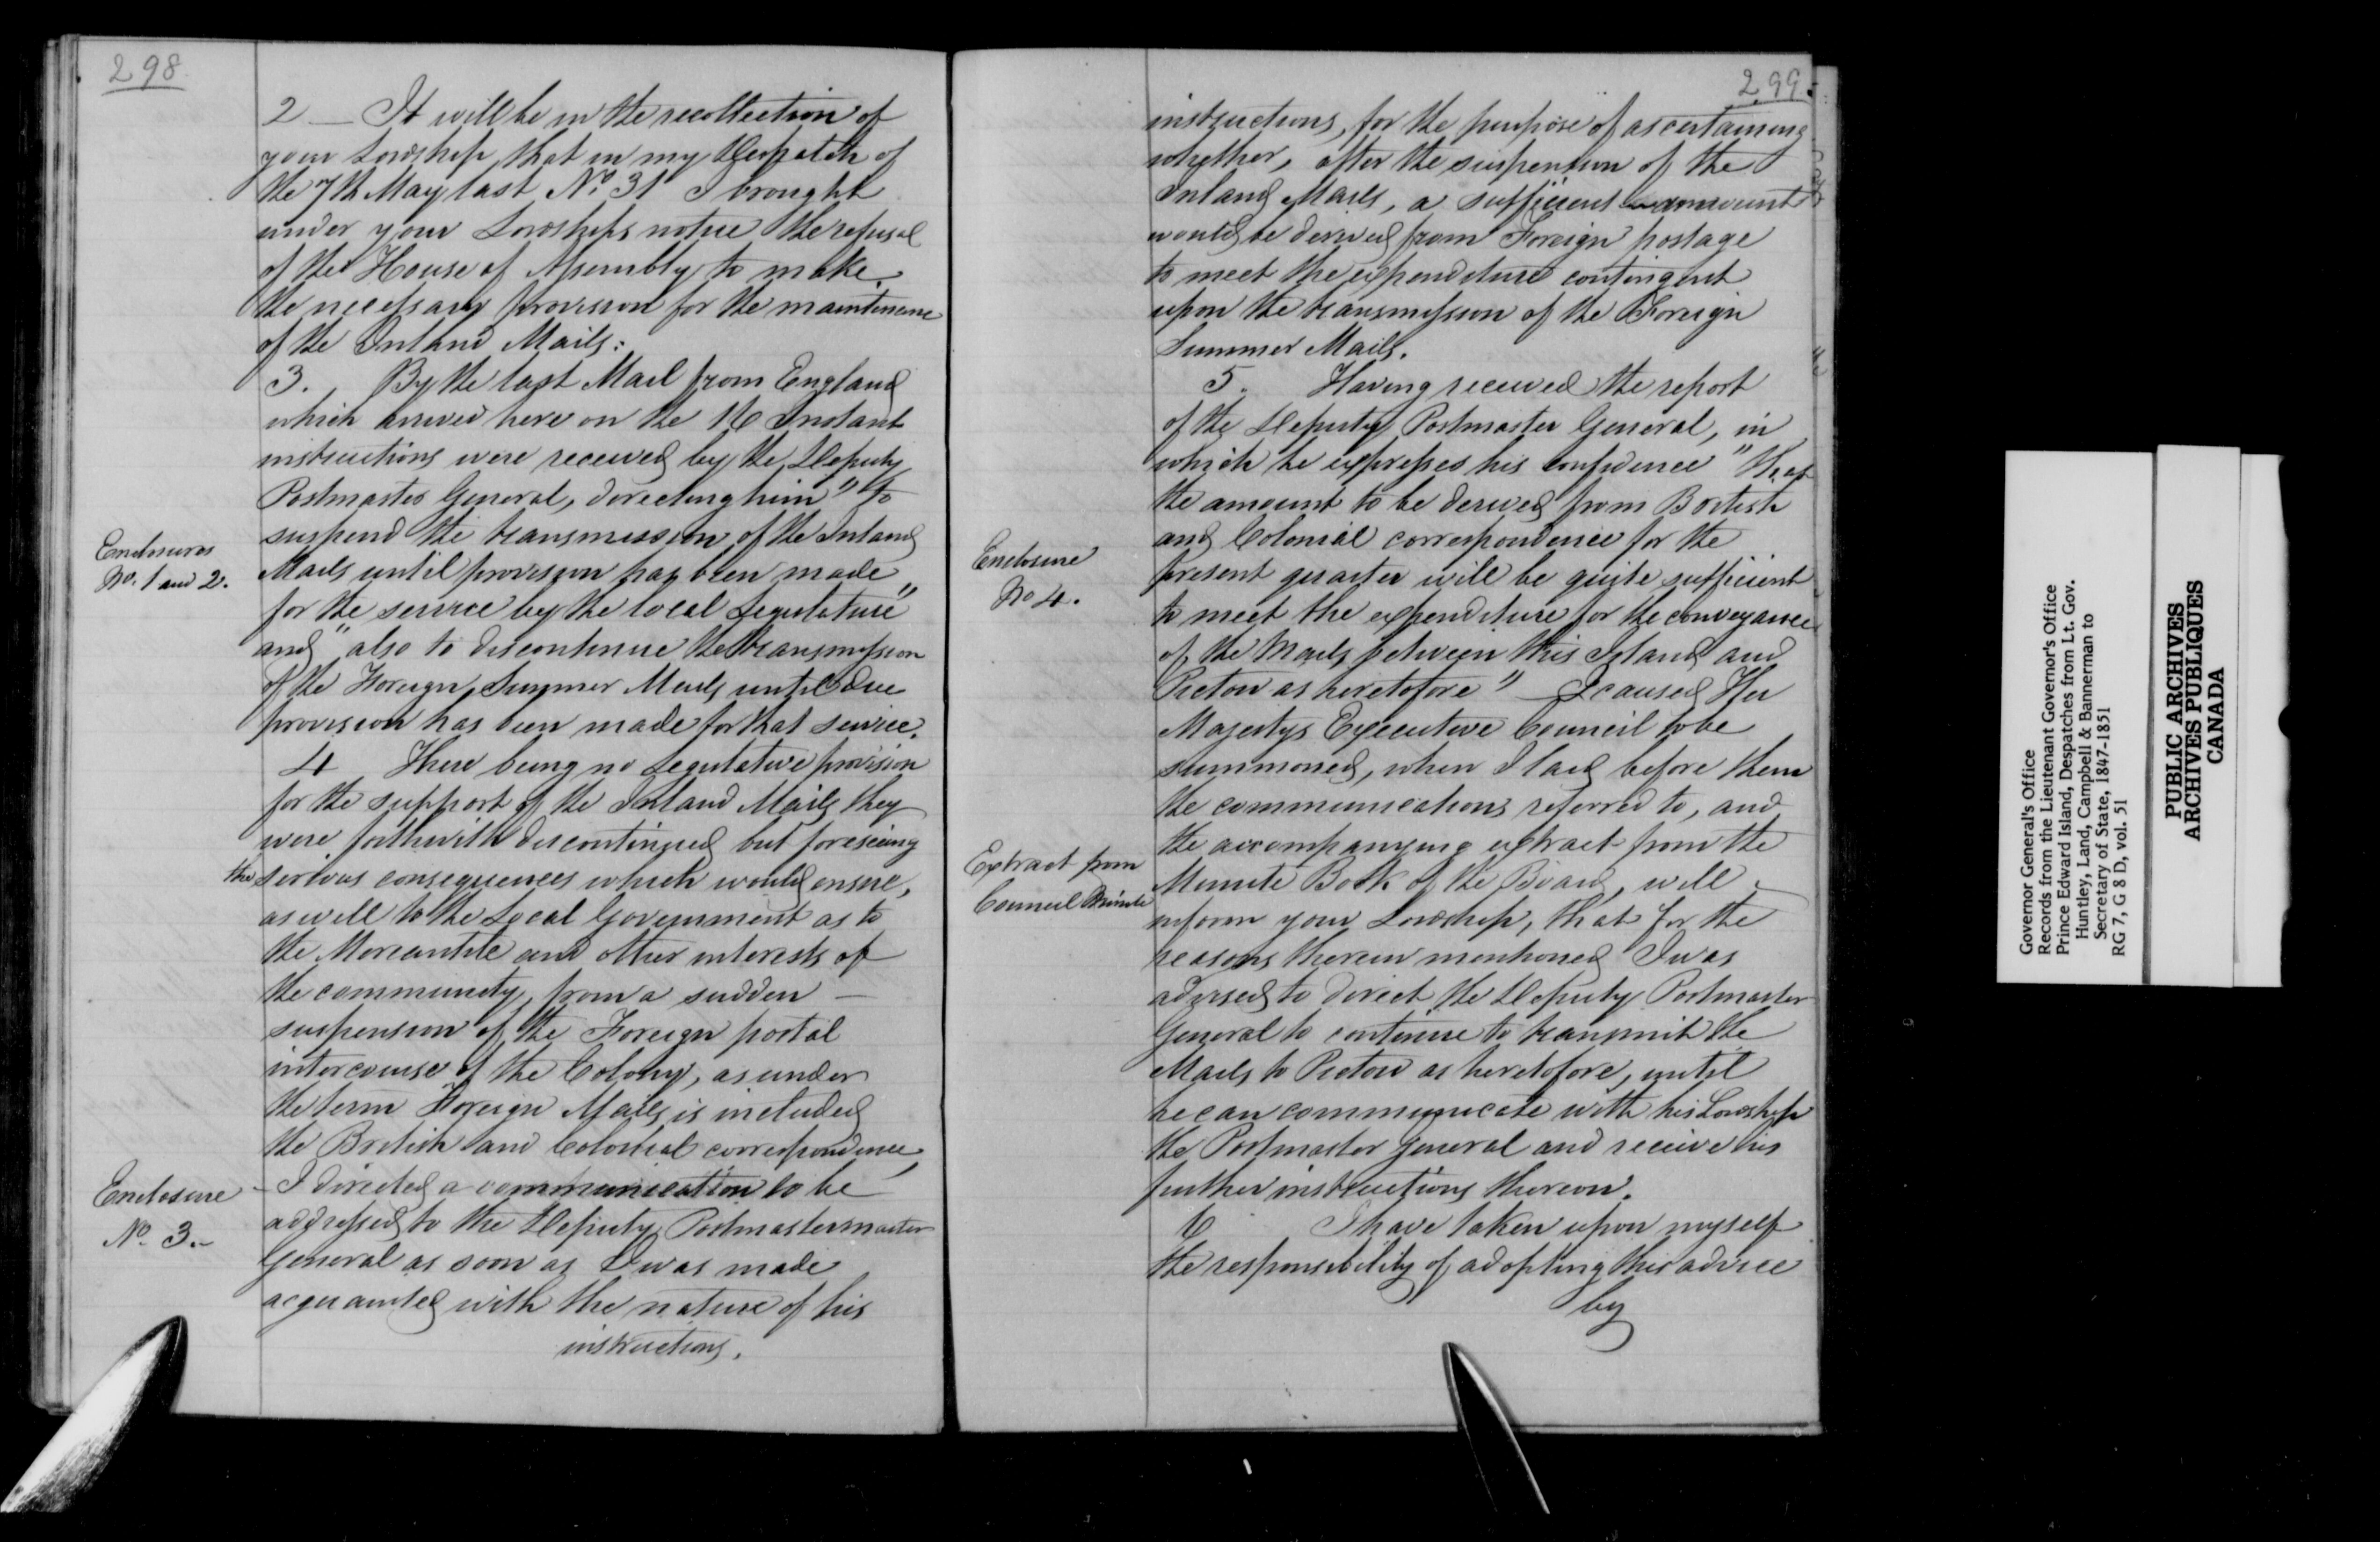 298
2 — It will be in the recollection of
your Lordship, that in my Despatch of
the 7th May last No. 31 I brought
under your Lordships notice the refusal
of the House of Assembly to make
the necessary provision for the maintenance
of the Inland Mails:
3. By the last Mail from England
which arrived here on the 16 Instant
instructions were received by the Deputy
Postmaster General, directing him "to
suspend the transmission of the Inland
Enclosures
No. 1 and 2.
Mails until provision has been made
for the service by the local Legislature"
and "also to discontinue the transmission
of the Foreign Summer Mails until due
provision has been made for that service.
4 There being no Legislative provision
for the support of the Inland Mails they
were forthwith discontinued but foreseeing
the serious consequences which would ensue,
as well to the Local Government as to
the Mercantile and other interests of
the community, from a sudden —
suspension of the Foreign postal
intercourse of the Colony, as under
the term Foreign Mails is included
the British and Colonial correspondence,
Enclosure
No. 3.-
- I directed a communication to be
addressed to the Deputy Postmastermaster
General as soon as I was made
acquainted with the nature of his
instructions.
299.
instructions, for the purpose of ascertaining
whether, after the suspension of the
Inland Mails, a sufficient amount
would be derived from Foreign postage
to meet the expenditure contingent
upon the transmission of the Foreign
Summer Mails.
5. Having received the report
of the Deputy Postmaster General, in
which he expresses his confidence "that
the amount to be derived from British
and Colonial correspondence for the
Enclosure
No 4.
present quarter will be quite sufficient
to meet the expenditure for the conveyance
of the Mails between this Island and
Pictou as heretofore" — I caused Her
Majestys Executive Council to be
summoned, when I laid before them
the communications referred to, and
the accompanying extract from the
Extract from
Council Minute
Minute Book of the Board, will
inform your Lordship, that for the
reasons therein mentioned I was
advised to direct the Deputy Postmaster
General to continue to transmit the
Mails to Pictou as heretofore, until
he can communicate with his Lordship
the Postmaster General and receive his
further instructions thereon.
6 I have taken upon myself
the responsibility of adopting this advice
by
Governor General's Office
Records from the Lieutenant Governor's Office
Prince Edward Island, Despatches from Lt. Gov.
Huntley, Land, Campbell & Bannerman to
Secretary of State, 1847-1851
RG 7, G 8 D, vol. 51
PUBLIC ARCHIVES
ARCHIVES PUBLIQUES
CANADA